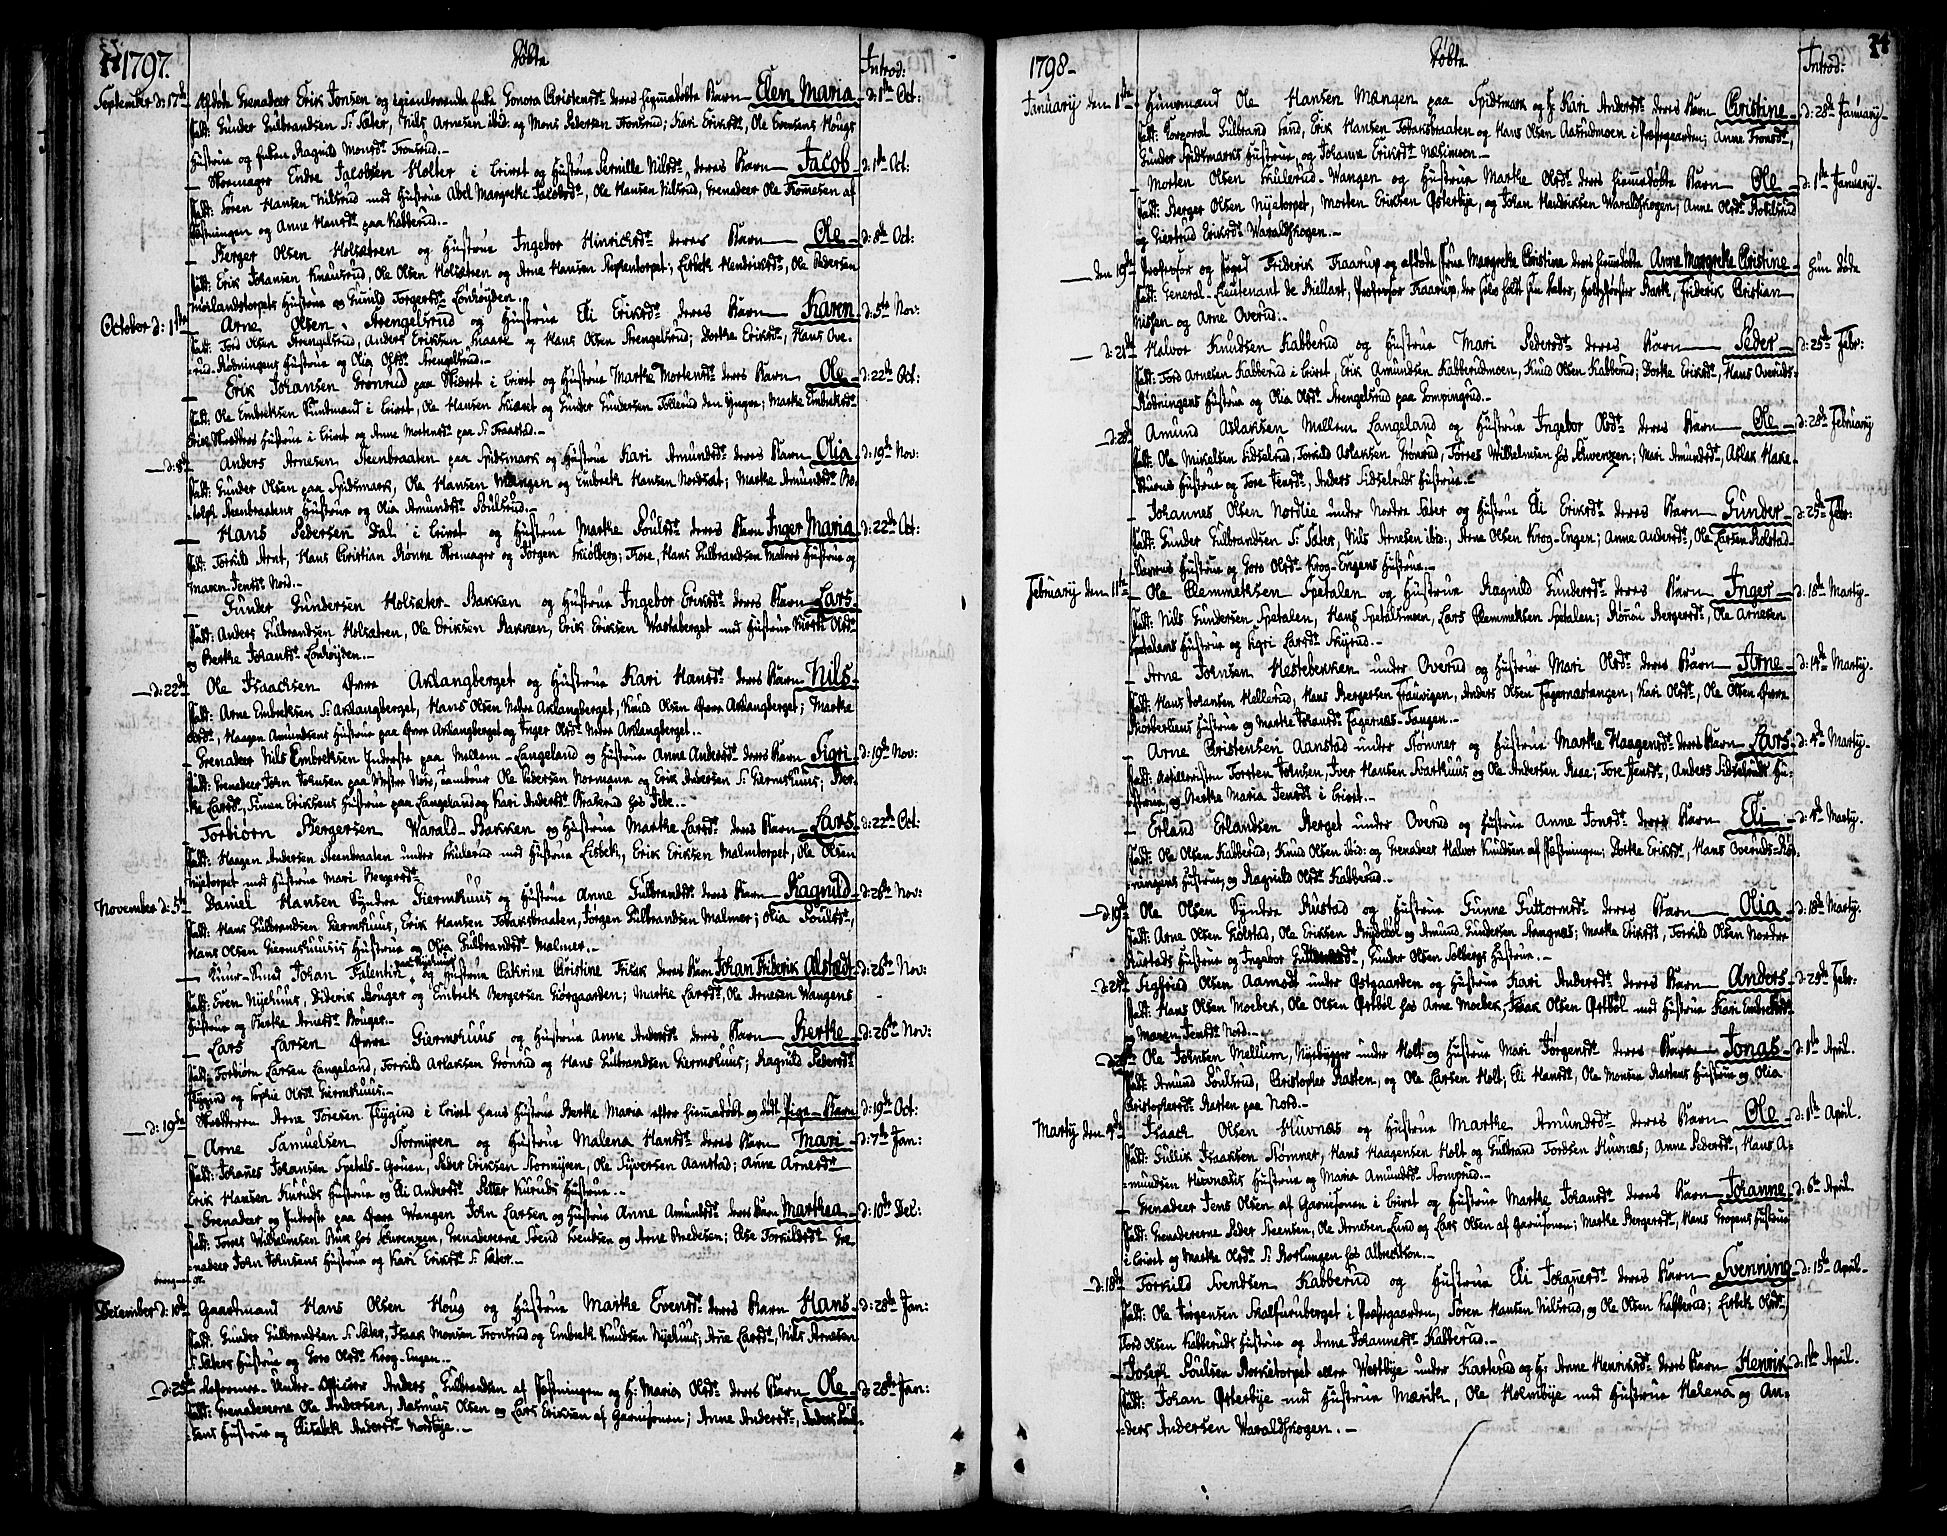 1797.
Døbte
Introd:
September d: 17de Afdøde Grenadeer Erik Jonsen og Gonora Christensdr deres hjemmedøbte Barn Elen Maria d: 1ste Oct:
Fadd: Gunder Gulbrandsen S. Sæter, Nils Arnesen ibid: og Mons Pedersen Tronsrud; Kari Eriksdr, Ole Evensens Hougs
Hustrue og Enken Ragnild Monsdr Tronsrud.
Skomager Endre Jacobsen Holter i Leiret og Hustrue Pernille Nilsdr deres Barn Jacob d: 1ste Oct:
Fadd: Søren Hansen Nilsrud med Hustrue Abel Margrete Jacobsdr, Ole Hansen Nilsrud, Grenadeer Ole Thomesen af
Fæstningen og Anne Hansdr paa Kabberud.
Berger Olsen Holsætren og Hustrue Ingebor Hinrichsdr deres Barn Ole d: 8de Oct:
Fadd: Erik Johansen Knausrud, Ole Olsen Holsætren og Arne Hansen; Lisbek Hendriksdr, Ole Pedersen
Hustrue og Gunild Torgersdr.
October d: 1ste Arne Olsen Strengelsrud og Hustrue Eli Eriksdr deres Barn Karen d: 5te Nov:
Fadd: Tord Olsen Strengelsrud, Anders Eriksen og Hans Olsen Strengelsrud; Dorke Eriksdr, Hans Ove-
ruds Rødningens Hustrue og Olia Olsdr Strengelsrud.
Erik Johansen Gronrud i Leiret og Hustrue Marke Mortensdr deres Barn Ole d: 22de Oct:
Fadd: Ole Embreksen Sundmand i Leiret, Ole Hansen og Gunder Gundersen Tollerud den Yngre; Marke Embreksdr
Hustrue i Leiret og Anne Mortensdr paa S. Fraastad.
d: 8de Anders Arnesen Steenbraaten paa Spidsmark og Hustrue Kari Amundsdr deres Barn Olia d: 19de Nov:
Fadd: Gunder Olsen paa Spidsmark, Ole Hansen Mængen og Embrek Hansen; Marke Amundsdr Ro-
tolph Steenbraatens Hustrue og Olia Amundsdr Poulsrud.
Hans Pedersen Dal i Leiret og Hustrue Marke Poulsdr deres Barn Inger Maria d: 22de Oct:
Fadd: Torkild Arnt, Hans Christian Rønne Skomager og Jørgen; Tore, Hans Gulbrandsen Malmers Hustrue og
Maren Jensdr Nord.
Gunder Gundersen Holsæter-Bakken og Hustrue Ingebor Eriksdr deres Barn Lars
Fadd: Anders Gulbrandsen Holsætren, Ole Eriksen Bakken, Erik Eriksen med Hustrue Olsdr
og Berthe Johansdr.
d: 22de Ole Isaachsen Øvre Aklangberget og Hustrue Kari Hansdr deres Barn Nils
Fadd: Arne Embreksen S. Aklangberget, Hans Olsen Nedre Aklangberget, Knud Olsen Øvre Aklangberget; Marke
Olsdr, Haagen Amundsens Hustrue paa Øvre Aklangberget og Inger Olsdr Nedre Aklangberget.
Grenadeer Nils Embreksen Inderste paa Mellem-Langeland og Hustrue Anne Andersdr deres Barn Sigri d: 19de Nov:
Fadd: Grenadeer John Johnsen paa Vestre Nord, Tambour Ole Pedersen Normann og Erik Andersen S. Giermshuus; Ber-
ke Larsdr, Simen Eriksens Hustrue paa Langeland og Kari Andersdr.
Torbiørn Bergersen Warald-Bakken og Hustrue Marke Larsdr deres Barn Lars d: 22de Oct:
Fadd: Haagen Andersen Steenbraaten under Skulerud med Hustrue Lisbek, Erik Eriksen Malmtorpet, Ole Olsen
Nyetorpet med Hustrue Mari Bergersdr.
November d: 5te Daniel Hansen Syndre Giermshuus og Hustrue Anne Gulbrandsdr deres Barn Ragnild d: 26de Nov:
Fadd: Hans Gulbrandsen Giermshuus, Erik Hansen Tobaksbraaten, Jørgen Gulbrandsen Malmer; Olia Poulsdr,
Hans Olsen Giermshuus Hustrue og Olia Gulbrandsdr Malmer.
Johan Falentin og Hustrue Cathrine Christine deres Barn Johan Friderik Alstedt d: 26de Nov:
Fadd: Even Nyehuus, Diderik Bouger og Embrek Bergersen Giørgaarden; Marke Larsdr, Ole Arnesen Wangens
Hustrue og Berthe Arnesdr Bouger.
Lars Larsen Øvre Giermshuus og Hustrue Anne Andersdr deres Barn Berthe d: 26de Nov:
Fadd: Torbiørn Larsen Langeland, Torkild Aslaksen Grønrud og Hans Gulbrandsen Giermshuus; Ragnild Pedersdr
Flygind og Sophie Olsdr Giermshuus.
d: 19de Arne Toresen Flygind i Leiret hans Hustrue Berthe Maria efter hjemmedøbt og dødt Pige-Barn d: 19de Oct:
Arne Samuelsen Stormyren og Hustrue Malena Hansdr deres Barn Mari d: 7de Jan:
Fadd: Johanes Johansen, Peder Eriksen Stormyren, Ole Syversen Aanstad; Anne Arnesdr
Erik Hansen Kuruds Hustrue og Eli Andersdr Petter Kuruds Hustrue.
Grenadeer og Inderste paa Øvre Wangen John Larsen og Hustrue Anne Amundsdr deres Barn Marthea d: 10de Dec:
Fadd: Torres Wilhelmsen, Grenadererne Svend Svendsen og Arne Amundsen; Else Torkildsdr Gre-
nadeer John Johnsens Hustrue og Kari Eriksdr S. Sæter.
December d: 10de Gaardmand Hans Olsen Houg og Hustrue Marthe Evensdr deres Barn Hans d: 28de Jan:
Fadd: Gunder Gulbrandsen S. Sæter, Isaak Monsen Tronsrud og Embrek Knudsen Nyehuus; Anne Larsdr, Nils Arnesen
S. Sæters Hustrue og Goro Olsdr Krog-Engen.
d: 25de Under-Officeer Anders Gulbrandsen af Fæstningen og H: Maria Olsdr deres Barn Ole d: 28de Jan:
Fadd: Grenadererne Ole Andersen, Rasmus Olsen og Lars Eriksen af Garnisonen; Anne Andersdr, Anders
Hustrue og Elisabek Andersdr Nordbye.
1798
Døbte
Introd:
Januarij den 1ste Huusmand Ole Hansen Mængen paa Spidsmark og H: Kari Andersdr deres Barn Christine d: 28de Januarij
Fadd: Corporal Gulbrand Lund, Erik Hansen Tobaksbraaten og Hans Olsen Aasrudmoen i Præstgaarden; Anne Tronsdr,
Gunder Spidsmarks Hustrue, og Johanne Eriksdr.
Morten Olsen Skulerud-Wangen og Hustrue Marke Olsdr deres hjemmedøbte Barn Ole d: 1ste Januarij
Fadd: Berger Olsen Nyetorpet, Morten Eriksen Østerbye, og Johan Hendriksen Waraldskogen; Anne Olsdr
og Giertrud Eriksdr Waraldskogen.
den 19de Professor og Foged Friderik Thaarup og afdøde Frue Margrete Christine deres hjemmedøbte Anne Margrete Christine hun døde
Fadd: General-Lieutenant de Biellart, Professor Thaarup, Friderik Christian
Nissen og Arne Overud.
d: 21de Halvor Knudsen Kabberud og Hustrue Mari Pedersdr deres Barn Peder d: 25de Febr:
Fadd: Tord Arnesen Kabberud i Leiret, Erik Amundsen Kabberudmoen, Knud Olsen Kabberud; Dorke Eriksdr, Hans Overuds-
Rødningens Hustrue og Olia Olsdr Strengelsrud paa Pompingrud.
d: 28de Amund Aslaksen Mellem Langeland og Hustrue Ingebor Olsdr deres Barn Ole d: 28de Februarij
Fadd: Ole Mikelsen Sidselrud, Torkild Aslaksen Grønrud, Torres Wilhelmsen; Mari Amundsdr, Aslak Hake-
Hustrue og Tore Jensdr, Anders Sidselruds Hustrue.
Johannes Olsen Nordlie under Nordre Sæter og Hustrue Eli Eriksdr deres Barn Gunder d: 25de Febr:
Fadd: Gunder Gulbrandsen S. Sæter, Nils Arnesen ibid:, Arne Olsen Krog-Engen; Anne Andersdr, Ole Larsen Rolstad-
Hustrue og Goro Olsdr Krog-Engens Hustrue.
Februarij den 11te Ole Clemmetsen Spetalen og Hustrue Ragnild Gundersdr deres Barn Inger d: 18de Martij
Fadd: Nils Gundersen Spetalen, Hans Spetalsmoen, Lars Clemmetsen Spetalen; Rønnau Bergersdr, Ole Arnesen
Spetalens Hustrue og Sigri Larsdr Skyrud.
Arne Johnsen Hestebekken under Overud og Hustrue Mari Olsdr deres Barn Arne d: 14de Martij.
Fadd: Hans Johansen Hellerud, Hans Bergersen, Anders Olsen Fagernæstangen; Kari Olsdr, Ole Olsen Øvre
Hustrue og Marke Johansdr Fagernæs-Tangen.
Arne Christensen Aanstad under Rømner og Hustrue Marke Haagensdr deres Barn Lars d: 4de Martij
Fadd: Artilleristen Torsten Johnsen, Iver Hansen og Ole Andersen Aase; Tore Jensdr, Anders Sidselruds Hu-
strue, og Berthe Maria Jensdr i Leiret.
Erland Erlandsen Berget under Overud og Hustrue Anne Jonsdr deres Barn Eli d: 4de Martij.
Fadd: Ole Olsen Kabberud, Knud Olsen ibid: og Grenadeer Halvor Knudsen af Fæstningen; Dorke Eriksdr, Hans Overuds-Rød-
ningens Hustrue, og Ragnild Olsdr Kabberud.
d: 19de Ole Olsen Syndre Rustad og Hustrue Gunne Guttormsdr deres Barn Olia d: 18de Martij.
Fadd: Arne Olsen Golstad, Ole Eriksen og Amund Gundersen; Marke Eriksdr, Torkild Olsen Nordre
Rustads Hustrue og Ingebor, Gunder Olsen Solbergs Hustrue.
d: 24de Segfried Olsen Aamodt under Østgaarden og Hustrue Kari Andersdr deres Barn Anders d: 25de Febr:
Fadd: Hans Olsen Moebek, Ole Olsen Østbøl hos Arne Moebek, Isaak Olsen Østbøl med Hustrue Kari Embreksdr
Maren Jensdr Nord.
Ole Johnsen Mellum, Nyebygger under Holt og Hustrue Mari Jørgensdr deres Barn Jonas d: 1ste April.
Fadd: Amund Poulsrud, Christopher Rasten, og Ole Larsen Holt; Eli Hansdr, Ole Monsen Rastens Hustrue og Olia
Christophersdr Rasten paa Nord.
Martij den 4de Isaach Olsen Huvnæs og Hustrue Marke Amundsdr deres Barn Ole d: 1ste April.
Fadd: Gullik Isaaksen Rømner, Hans Haagensen Holt og Gulbrand Tordsen Huvnæs; Anne Pedersdr, Hans A-
mundsen Huvnæsets Hustrue og Maria Amundsdr.
Grenadeer Jens Olsen af Garnisonen i Leiret og Hustrue Marke Johansdr deres Barn Johanne d: 6te April.
Fadd: Grenadererne Peder Steensen, Ole Arnesen Lund og Lars Olsen af Garnisonen; Marke Bergersdr, Hans Gropens Hustrue
i Leiret og Marke Olsdr S. hos Albrectson.
d: 18de Torkild Svendsen Kabberud og Hustrue Eli Johannesdr deres Barn Svenning d: 15de April
Fadd: Ole Jørgensen Skalfurruberget i Præstgaarden, Søren Hansen Nilsrud, og Ole Olsen Kabberud; Lisbek Olsdr,
Tord Olsen Kabberuds Hustrue og Anne Johannesdr Kabberud.
Joseph Poulsen ellers Westbye under Karterud og H: Anne Henriksdr deres Barn Henrik d: 1ste April.
Fadd: Johan Østerbye med Hustrue Mærith, Ole Holmbye med Hustrue Helena og An-
ders Andersen Waraldskogen.